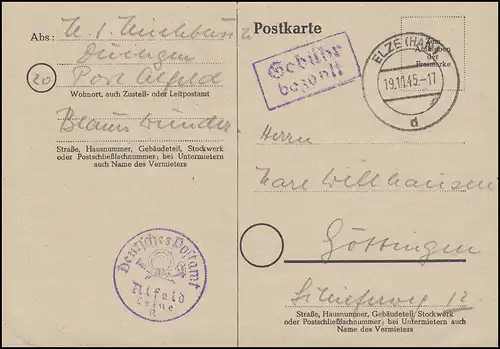 Abs:
Post Alfeld
20
Wohnort, auch Zustell- oder Leitpostamt
Straße, Hausnummer, Gebäudeteil, Stockwerk
oder Postschließfachnummer; bei Untermietern
auch Name des Vermieters
Deutsches Postamt
Alfeld
Leine
Postkarte
Gebühr
bezahlt
zum
Aufkleben
der
Freimarke
ELZE (HAN)
19.11.45.-17
d
Herrn
Karl Willhausen
Göttingen
12
Straße, Hausnummer, Gebäudeteil, Stockwerk
oder Postschließfachnummer; bei Untermietern auch
Name des Vermieters